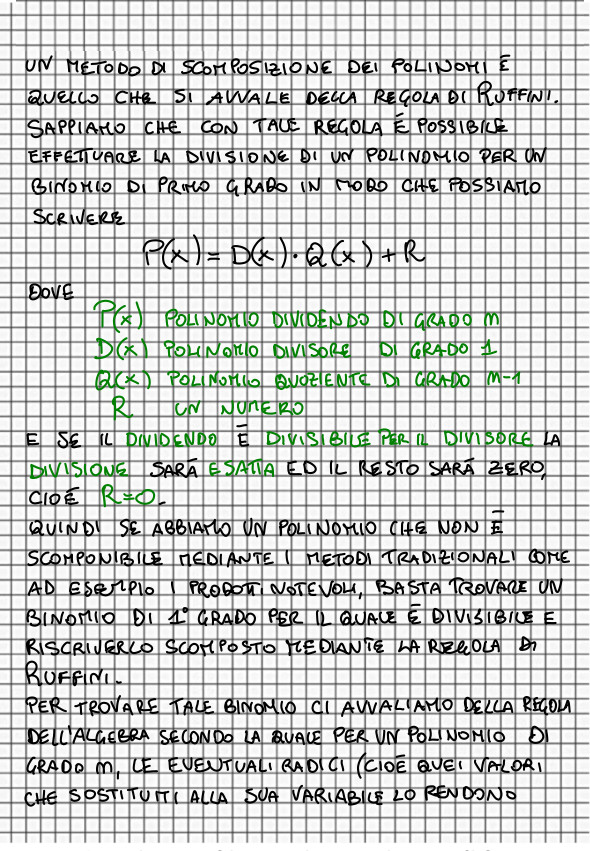 UN METODO DI SCOMPOSIZIONE DEI POLINOMI È
QUELLO CHE SI AVVALE DELLA REGOLA DI RUFFINI.
SAPPIAMO CHE CON TALE REGOLA È POSSIBILE
EFFETTUARE LA DIVISIONE DI UN POLINOMIO PER UN
BINOMIO DI PRIMO GRADO IN MODO CHE POSSIAMO
SCRIVERE
P(x) = D(x) · Q(x) + R
DOVE
P(x) POLINOMIO DIVIDENDO DI GRADO m
D(x) POLINOMIO DIVISORE DI GRADO 1
Q(x) POLINOMIO QUOZIENTE DI GRADO m-1
R UN NUMERO
E SE IL DIVIDENDO È DIVISIBILE PER IL DIVISORE LA
DIVISIONE SARÀ ESATTA ED IL RESTO SARÀ ZERO,
CIOÈ R=0.
QUINDI SE ABBIAMO UN POLINOMIO CHE NON È
SCOMPONIBILE MEDIANTE I METODI TRADIZIONALI COME
AD ESEMPIO I PRODOTTI NOTEVOLI, BASTA TROVARE UN
BINOMIO DI 1° GRADO PER IL QUALE È DIVISIBILE E
RISCRIVERLO SCOMPOSTO MEDIANTE LA REGOLA DI
RUFFINI.
PER TROVARE TALE BINOMIO CI AVVALIAMO DELLA REGOLA
DELL'ALGEBRA SECONDO LA QUALE PER UN POLINOMIO DI
GRADO m, LE EVENTUALI RADICI (CIOÈ QUEI VALORI
CHE SOSTITUITI ALLA SUA VARIABILE LO RENDONO